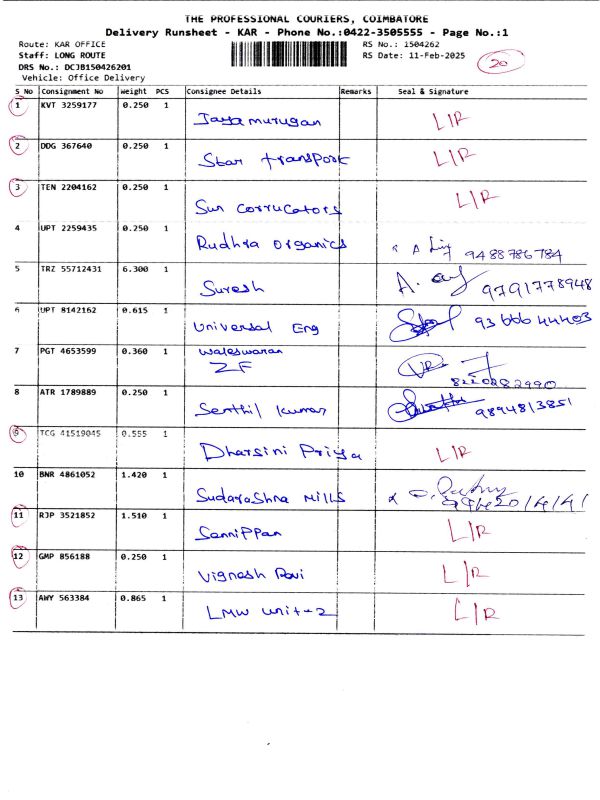 THE PROFESSIONAL COURIERS, COIMBATORE
Delivery Runsheet - KAR - Phone No.:0422-3505555 - Page No.:1
Route: KAR OFFICE RS No.: 1504262
Staff: LONG ROUTE RS Date: 11-Feb-2025 20
DRS No.: DCJB150426201
Vehicle: Office Delivery
S No Consignment No Weight PCS Consignee Details Remarks Seal & Signature
1 KVT 3259177 0.250 1 Jayamurugan L/R
2 DDG 367640 0.250 1 Star transport L/R
3 TEN 2204162 0.250 1 Sun corrucators L/R
4 UPT 2259435 0.250 1 Rudhra organics 9488786784
5 TRZ 55712431 6.300 1 Suresh 9791778948
6 UPT 8142162 0.615 1 Universal Eng 9366644403
7 PGT 4653599 0.360 1 waleswaran
ZF 8220282990
8 ATR 1789889 0.250 1 Senthil kumar 9894813851
9 TCG 41519045 0.555 1 Dharsini Priya L/R
10 BNR 4861052 1.420 1 Sudarashna Mills
11 RJP 3521852 1.510 1 Sannippan L/R
12 GMP 856188 0.250 1 Vignesh Ravi L/R
13 AWY 563384 0.865 1 LMW unit-2 L/R